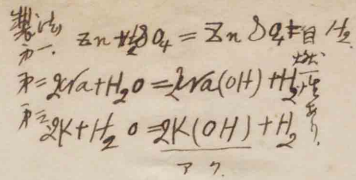 製法
第一. Zn + H2SO4 = ZnSO4 + H2
第二 2Na + H2O = 2Na(OH) + H2
第三 2K + H2O = 2K(OH) + H2
自燃性あり
アク